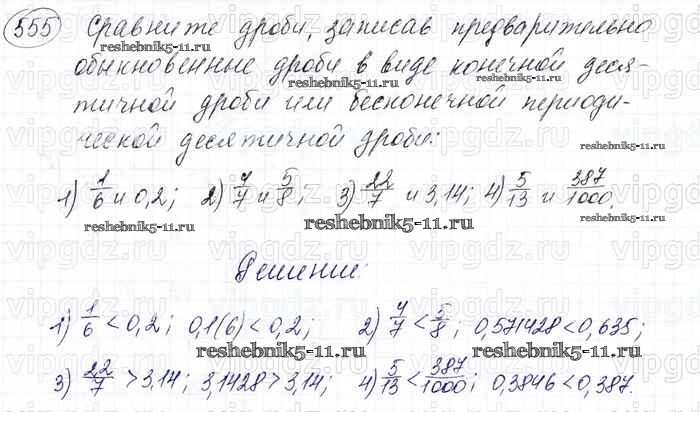 555 Сравните дроби, записав предварительно
обыкновенные дроби в виде конечной деся-
тичной дроби или бесконечной периоди-
ческой десятичной дроби:
1) 1/6 и 0,2; 2) 4/7 и 5/8; 3) 22/7 и 3,14; 4) 5/13 и 387/1000.
Решение:
1) 1/6 < 0,2; 0,1(6) < 0,2; 2) 4/7 < 5/8; 0,571428 < 0,635;
3) 22/7 > 3,14; 3,1428 > 3,14; 4) 5/13 < 387/1000; 0,3846 < 0,387.
reshebnik5-11.ru
reshebnik5-11.ru
reshebnik5-11.ru
reshebnik5-11.ru
reshebnik5-11.ru
reshebnik5-11.ru
reshebnik5-11.ru
vipgdz.ru